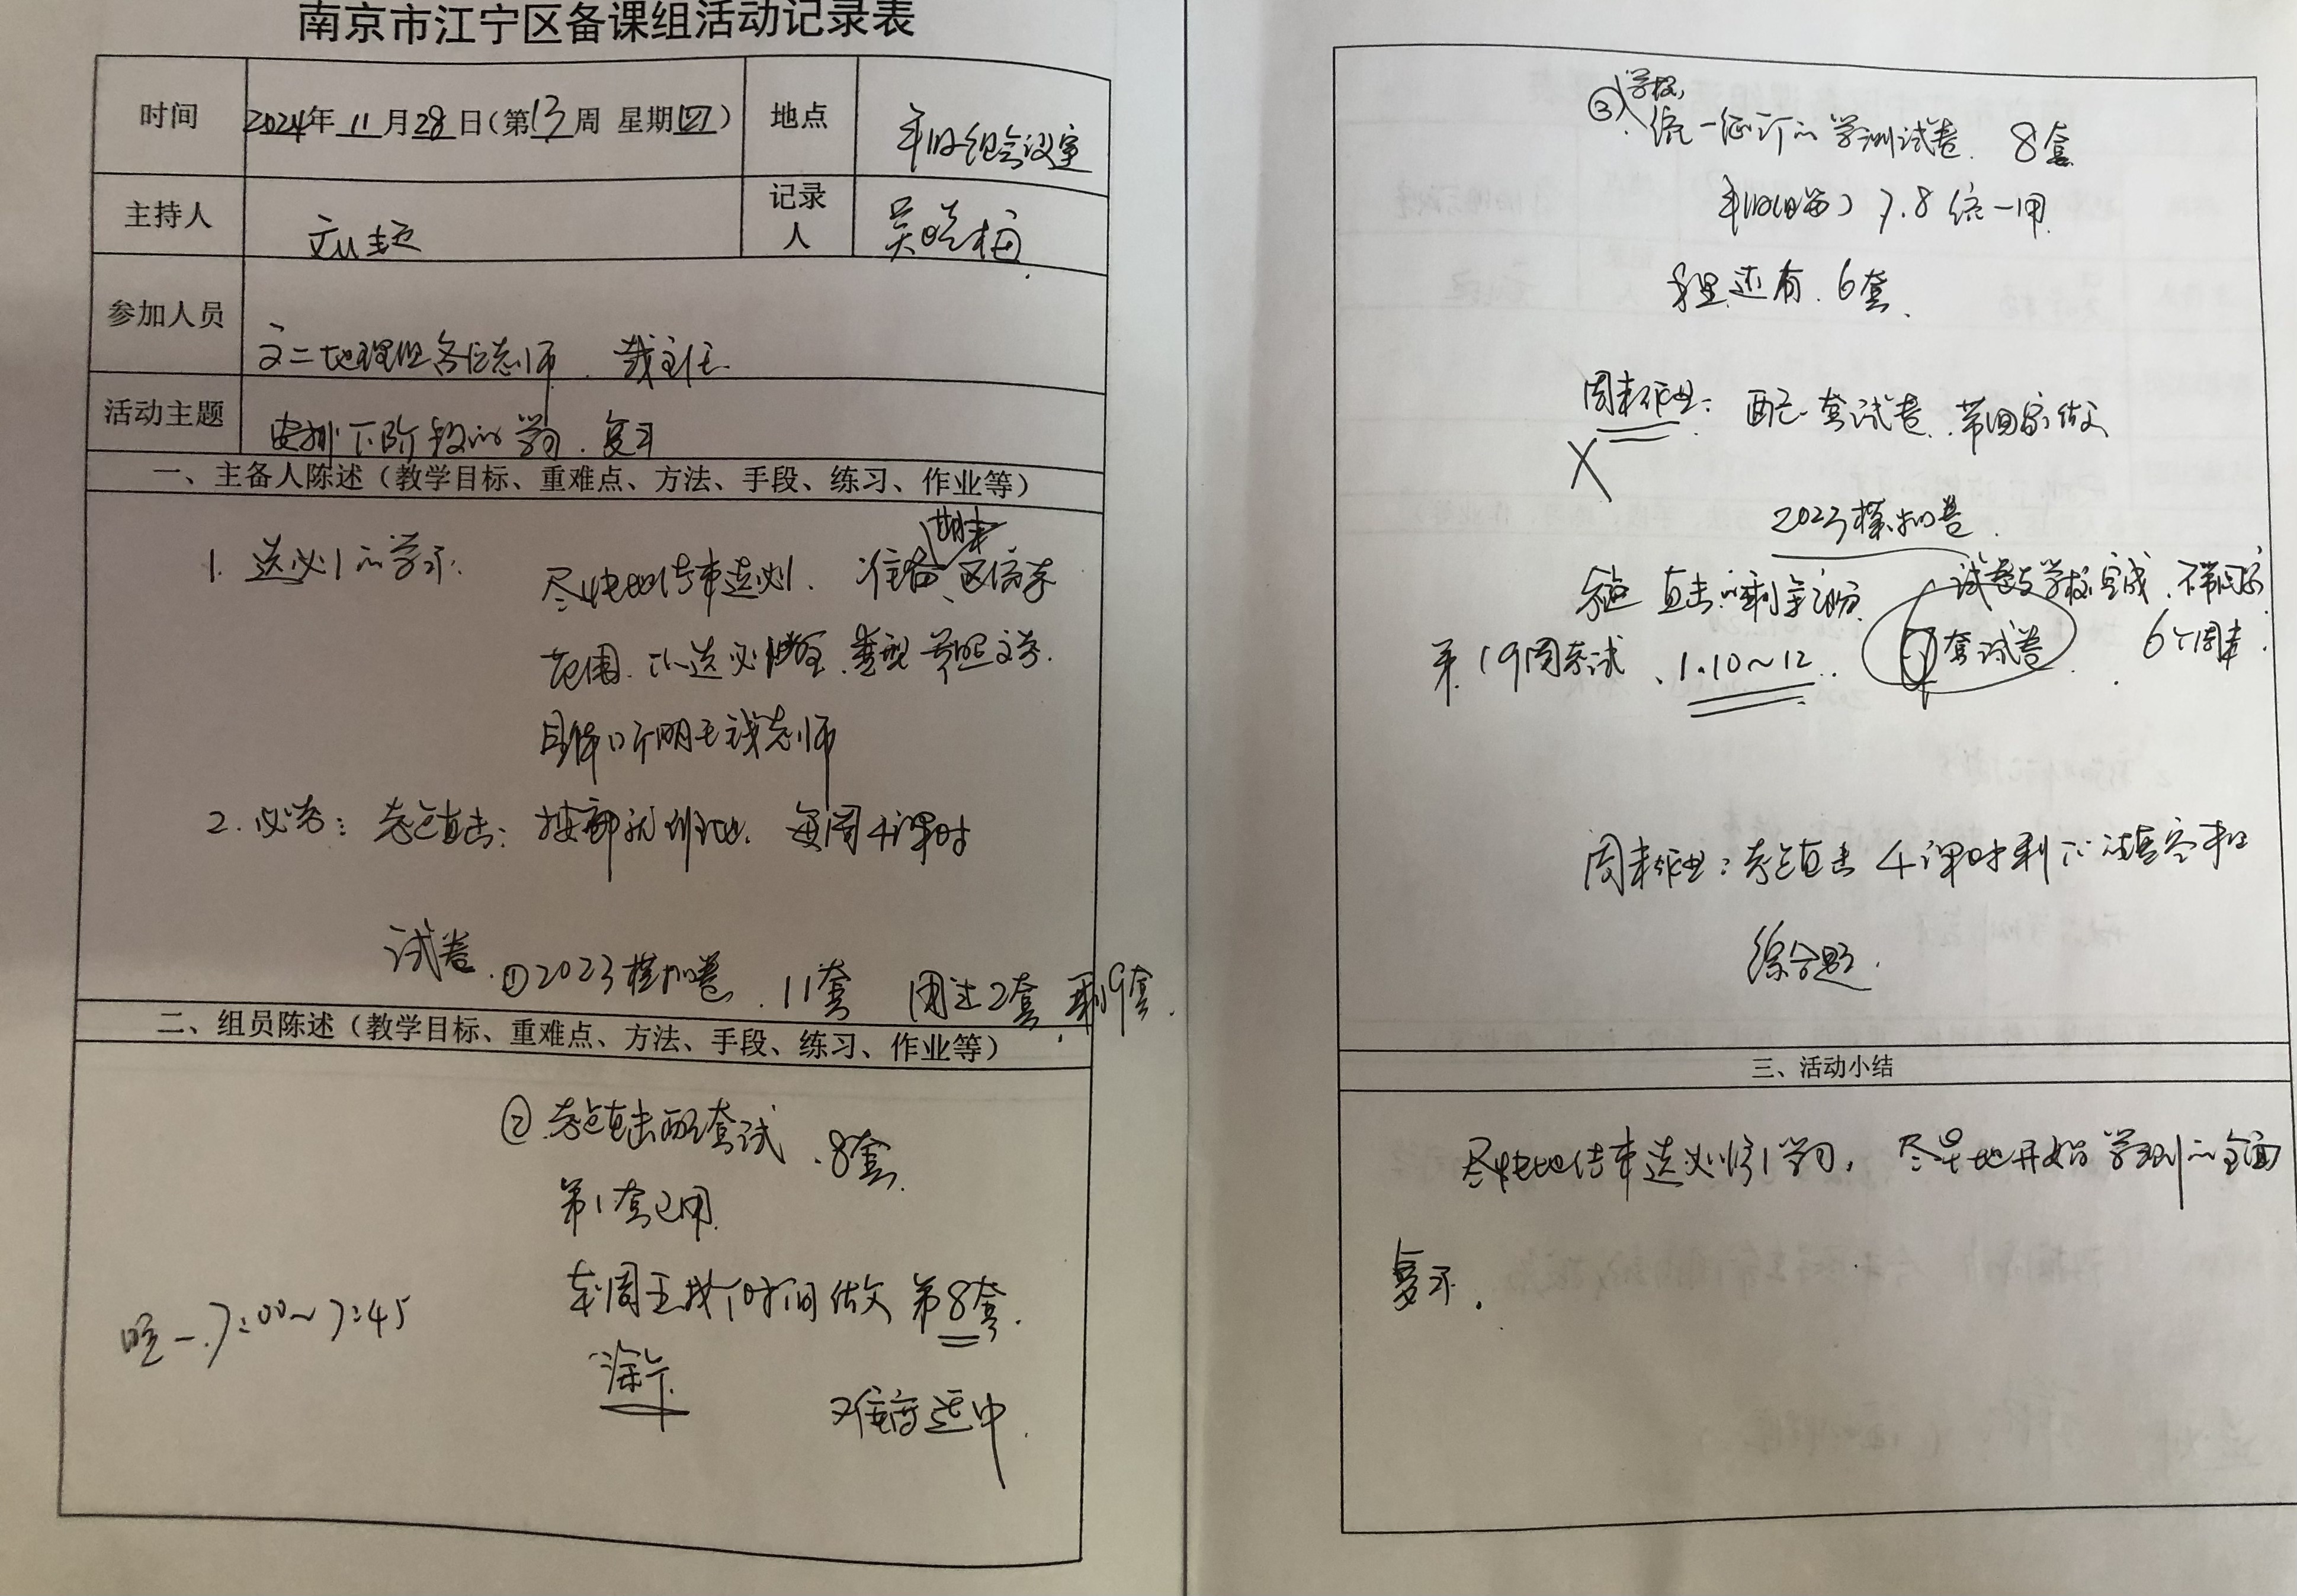 南京市江宁区备课组活动记录表
时间 2024年 11 月 28 日（第 13 周 星期 四） 地点 年级组会议室
主持人 记录人 吴晓梅
参加人员 高二地理组各位老师、 主任
活动主题 安排下阶段的学习、复习
一、主备人陈述（教学目标、重难点、方法、手段、练习、作业等）
期末
1. 选必1的学习: 尽快地结束选必1. 准备、区统考
范围. 选必 类型 参照
具体听 老师
2. 必考: 考点直击: 按部就班地. 每周4课时
试卷. ①2023模拟卷. 11套 用过2套, 剩9套.
二、组员陈述（教学目标、重难点、方法、手段、练习、作业等）
②考点直击配套试 . 8套.
第1套已用.
本周五找个时间做 第8套.
周一. 7:00~7:45
涂卡.
难度适中.
学校,
③统一征订的学测试卷. 8套
年级 7.8统一用.
还有. 6套.
周末作业: 配 套试卷、带回家做
X
2023模拟卷.
直击的剩余 试卷在学校完成, 不带回家
第19周考试、1.10~12. 套试卷. 6个周末.
周末作业: 考点直击 4课时剩下 填空和
综合题.
三、活动小结
尽快地结束选必修1学习, 尽早地开始学测的全面
复习.